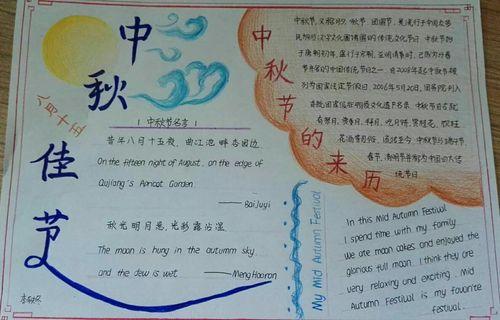 中秋佳节
八月十五
中秋节的来历
中秋节,又称月夕、秋节、团圆节,是流行于中国众多
民族与汉字文化圈诸国的传统文化节日。中秋节始
于唐朝初年,盛行于宋朝,至明清时,已成为与春
节齐名的中国传统节日之一。自2008年起中秋节被
列为国家法定节假日。2006年5月20日,国务院列入
首批国家级非物质文化遗产名录。中秋节自古就
有祭月、赏月、拜月、吃月饼、赏桂花、饮桂
花酒等习俗,流传至今。中秋节与端午节、
春节、清明节并称为中国四大传
统节日。
中秋节名言
昔年八月十五夜,曲江池畔杏园边
On the fifteen night of August, on the edge of
Qujiang's Apricot Garden
——BaiJuyi
秋光明月悬,光彩露沾湿
The moon is hung in the autumn sky
and the dew is wet ——Meng Haoran
My Mid Autumn Festival
In this Mid Autumn Festival
I spend time with my family.
We ate moon cakes and enjoyed the
glorious full moon. I think they are
very relaxing and exciting. Mid
Autumn Festival is my favorite
festival.